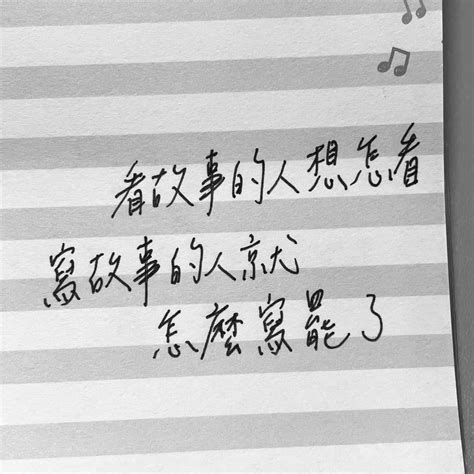 看故事的人想怎看
寫故事的人就
怎麼寫罷了